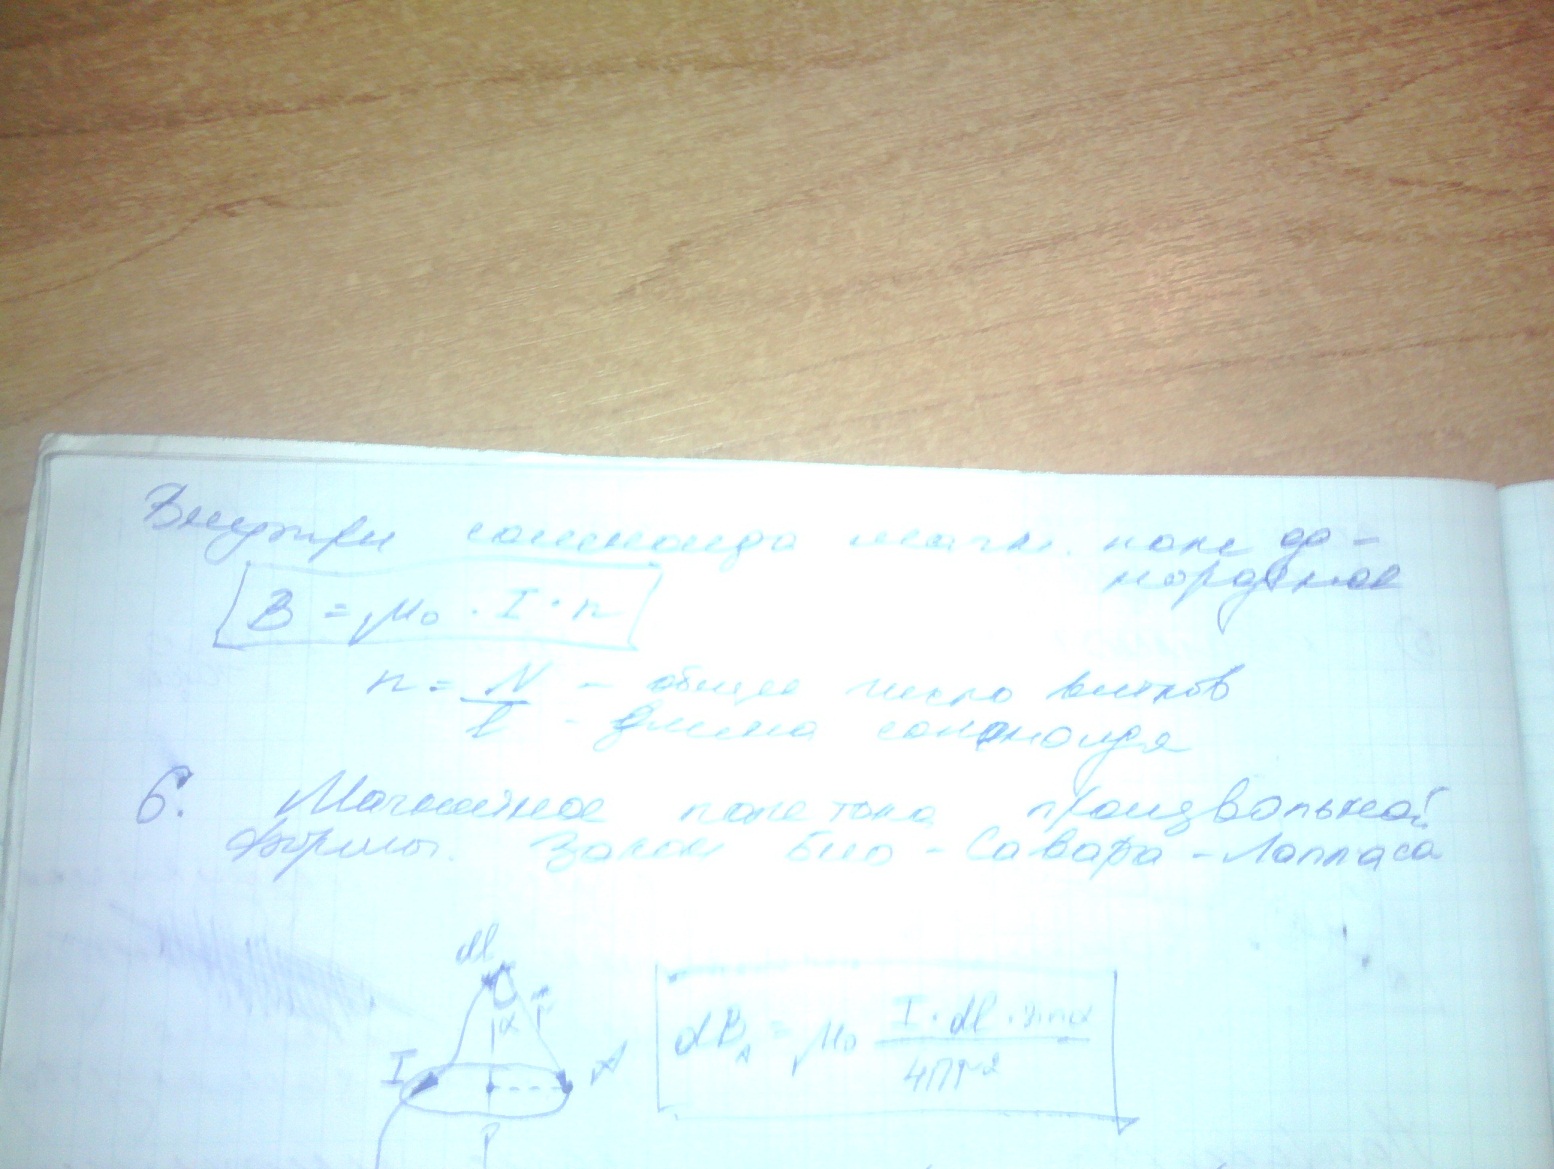 Внутри соленоида магн. поле од-
нородное
B = μ₀ · I · n
n = N/l - общее число витков
- длина соленоида
6. Магнитное поле тока произвольной
формы. Закон Био-Савара-Лапласа
dl
α r
I A
dB_A = μ₀ I · dl · sinα / 4πr²